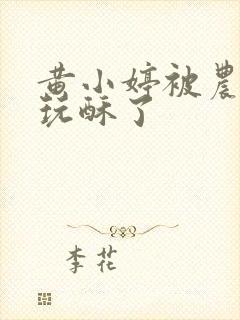 黄小婷被農
玩酥了
李花